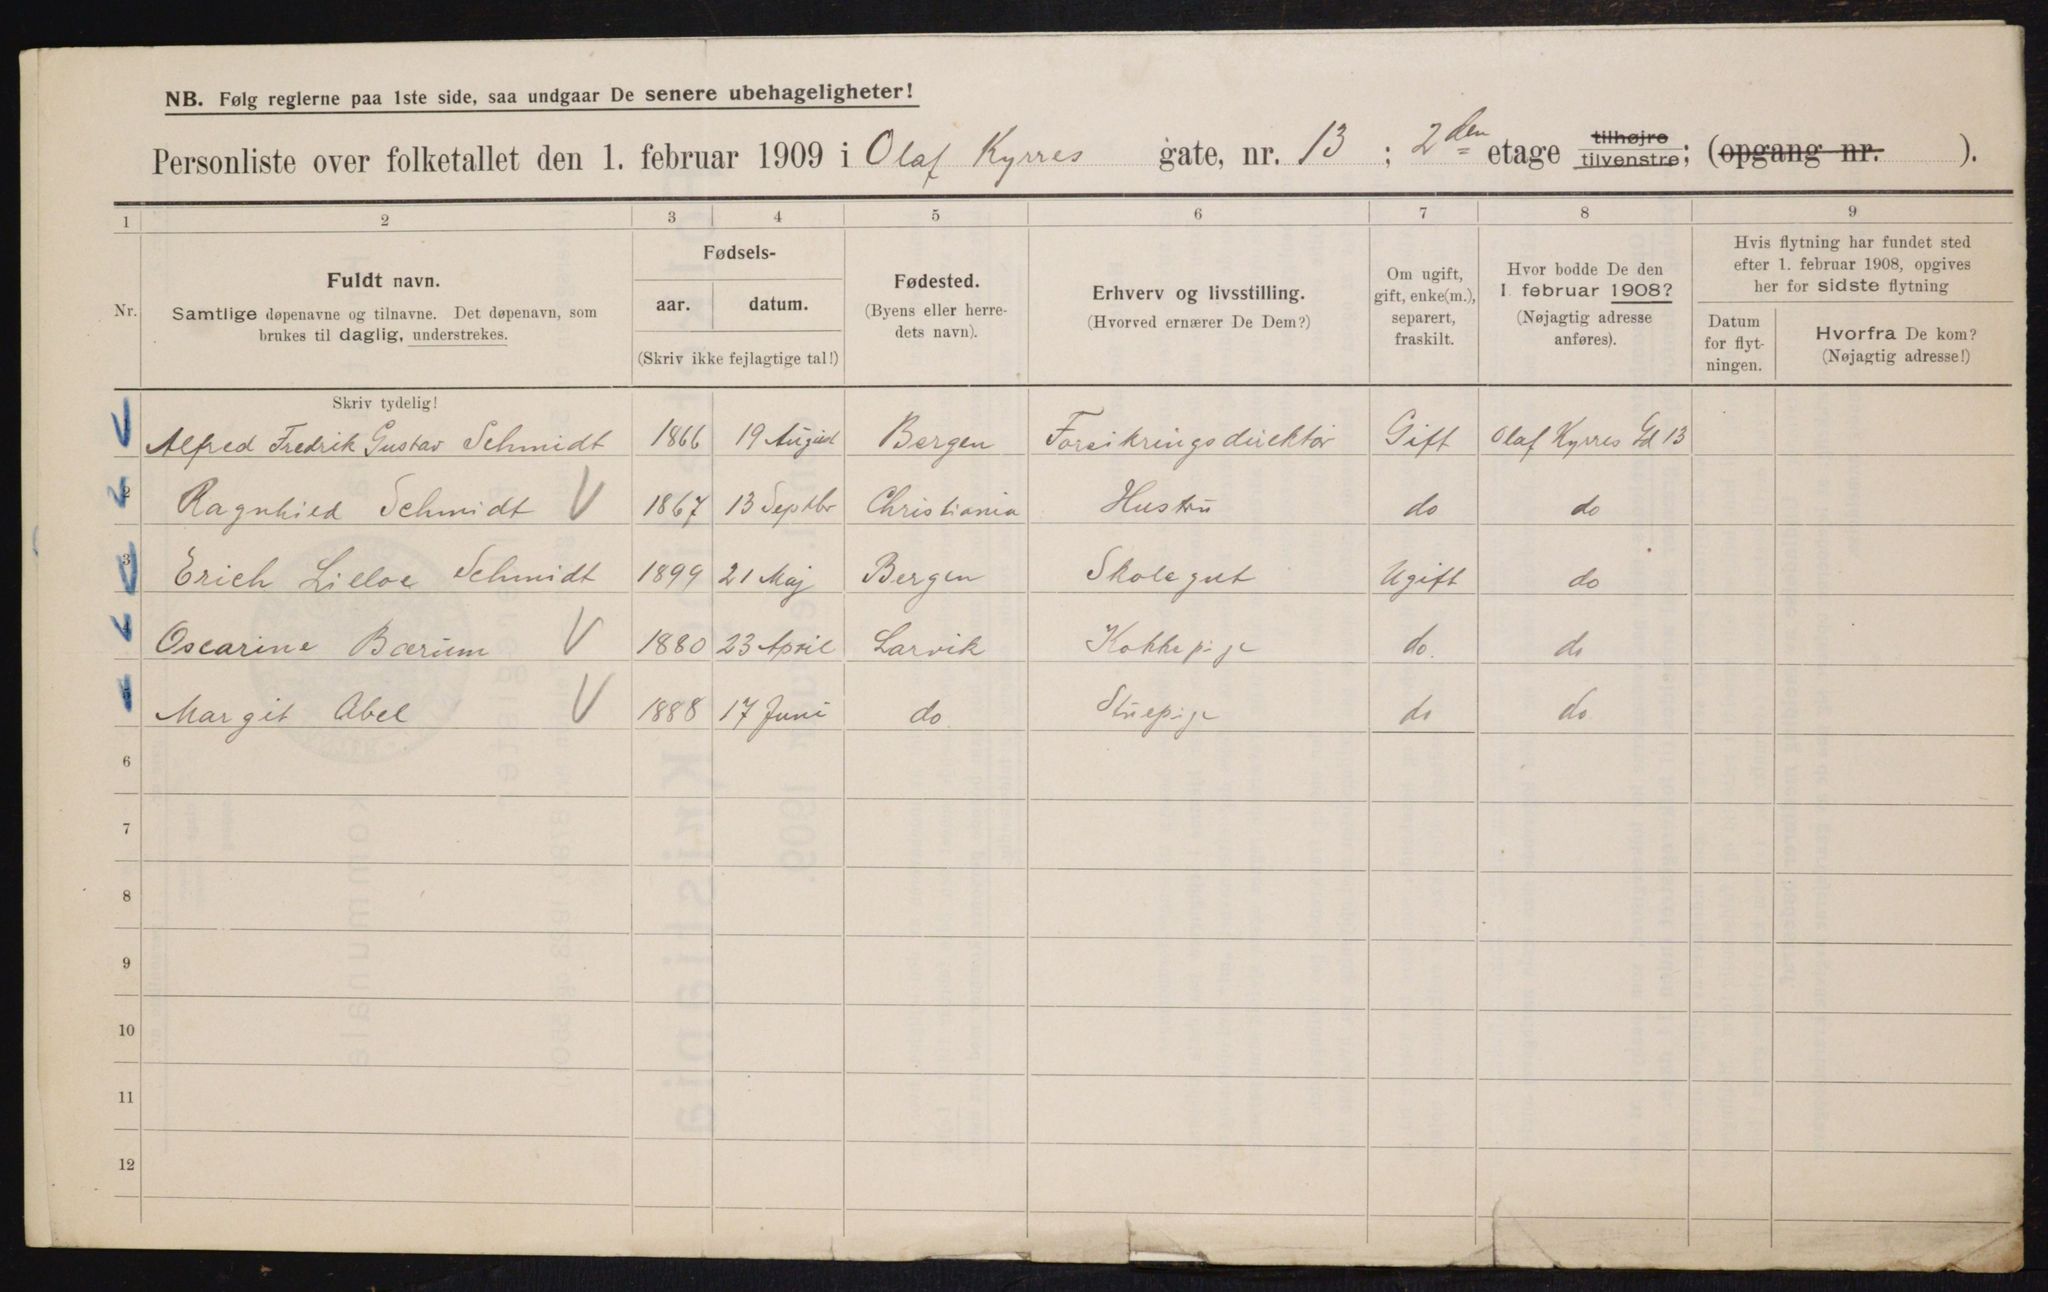 NB. Følg reglerne paa 1ste side, saa undgaar De senere ubehageligheter!
Personliste over folketallet den 1. februar 1909 i Olaf Kyrres gate, nr. 13 ; 2den etage tilhøjre tilvenstre; (opgang nr. ).
1 2 3 4 5 6 7 8 9
Nr.
Fuldt navn.
Samtlige døpenavne og tilnavne. Det døpenavn, som
brukes til daglig, understrekes.
Fødsels-
aar. datum.
(Skriv ikke fejlagtige tal!)
Fødested.
(Byens eller herre-
dets navn).
Erhverv og livsstilling.
(Hvorved ernærer De Dem?)
Om ugift,
gift, enke(m.),
separert,
fraskilt.
Hvor bodde De den
1. februar 1908?
(Nøjagtig adresse
anføres).
Hvis flytning har fundet sted
efter 1. februar 1908, opgives
her for sidste flytning
Datum
for flyt-
ningen.
Hvorfra De kom?
(Nøjagtig adresse!)
Skriv tydelig!
Alfred Fredrik Gustav Schmidt 1866 19 August Bergen Forsikringsdirektør Gift Olaf Kyrres Gd 13
2 Ragnhild Schmidt 1867 13 Septbr Christiania Hustru do do
3 Erich Lilloe Schmidt 1899 21 Maj Bergen Skolegut Ugift do
4 Oscarine Bærum 1880 23 April Larvik Kokkepige do. do
5 Margit Abel 1888 17 Juni do Stuepige do do
6
7
8
9
10
11
12